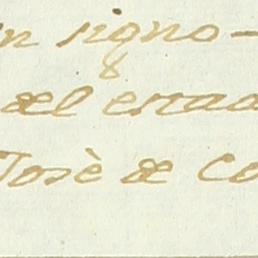 en signo-
del estad
Josè de Co